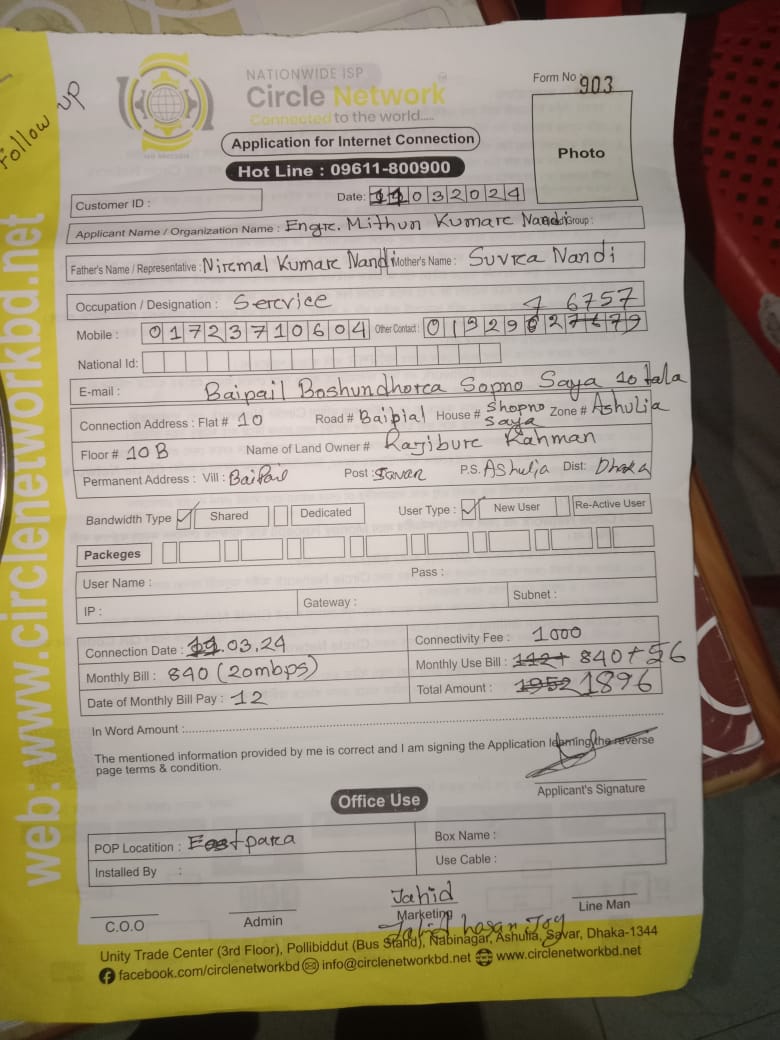 Follow up
NATIONWIDE ISP
Circle Network
Connected to the world.....
Form No 903
Application for Internet Connection
Photo
Hot Line : 09611-800900
Customer ID :
Date: 032024
Applicant Name / Organization Name : Engr. Mithun Kumar Nandi Group :
Father's Name / Representative : Nirmal Kumar Nandi Mother's Name : Suvra Nandi
Occupation / Designation : Service
7 6757
Mobile : 01723710604 Other Contact : 01929
National Id:
E-mail : Baipail Boshundhora Sopno Saya 10 tala
Connection Address : Flat # 10 Road # Baipial House # Shopno Saya Zone # Ashulia
Floor # 10 B Name of Land Owner # Rajibur Rahman
Permanent Address : Vill : Baipail Post : Savar P.S. Ashulia Dist: Dhaka
Bandwidth Type Shared Dedicated User Type : New User Re-Active User
Packeges
User Name : Pass :
IP : Gateway : Subnet :
Connection Date : .03.24 Connectivity Fee : 1000
Monthly Bill : 840 (20mbps) Monthly Use Bill : 112+ 840+56
Date of Monthly Bill Pay : 12 Total Amount : 1952 1896
In Word Amount :
The mentioned information provided by me is correct and I am signing the Application learning the reverse
page terms & condition.
Applicant's Signature
Office Use
POP Locatition : East para Box Name :
Installed By : Use Cable :
Jahid
C.O.O Admin Marketing Line Man
Jahid hasan Joy
Unity Trade Center (3rd Floor), Pollibiddut (Bus Stand), Nabinagar, Ashulia, Savar, Dhaka-1344
facebook.com/circlenetworkbd info@circlenetworkbd.net www.circlenetworkbd.net
web: www.circlenetworkbd.net